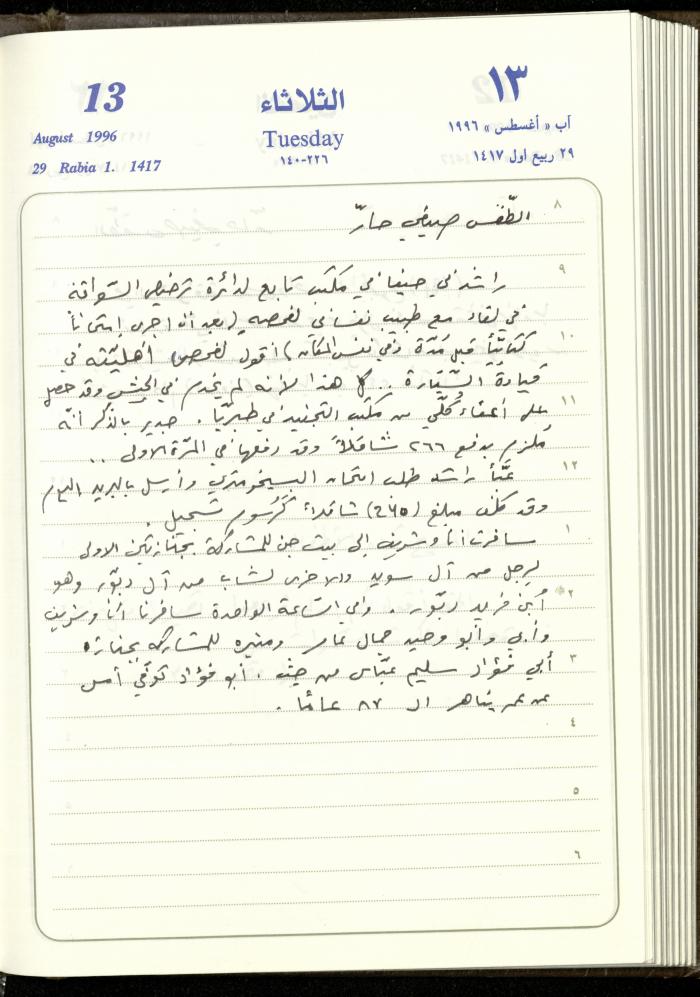 13
August 1996
29 Rabia 1. 1417
الثلاثاء
Tuesday
٢٢٦-١٤٠
١٣
آب « أغسطس » ١٩٩٦
٢٩ ربيع اول ١٤١٧
٨
الطّقس صيفي حارّ
٩
راشد في حيفا في مكتب تابع لدائرة ترخيص السّواقة
في لقاء مع طبيب نفساني لفحصه (بعد أن اجرى امتحانًا
١٠
كتابيًّا قبل مُدّة وفي نفس المكان) اقول لفحص أهليّته في
قيادة السّيّارة .. كل هذا لأنه لم يخدم في الجيش وقد حصل
١١
على اعفاء كُلّي من مكتب التجنيد في طبريّا . جدير بالذّكر أنّه
مُلزم بدفع ٢٦٦ شاقلاً وقد دفعها في المرّة الاولى ..
١٢
عبّأ راشد طلب امتحان البسيخومتري وأرسل بالبريد اليوم
وقد كلّف مبلغ (٢٦٥) شاقلاً كرُسوم تسجيل .
١
سافرت أنا وشريف إلى بيت جن للمشاركة بجنازتين الاولى
لرجل من آل سويد والاخرى لشاب من آل دبّور وهو
٢
أبن فريد دبّور . وفي السّاعة الواحدة سافرنا أنا وشريف
وأبي وأبو وحيد جمال عامر ومنيره للمشاركة بجنازة
٣
أبي فؤاد سليم عبّاس من جث . أبو فؤاد توفّي أمس
عن عمر يناهز الـ ٨٧ عامًا .
٤
٥
٦